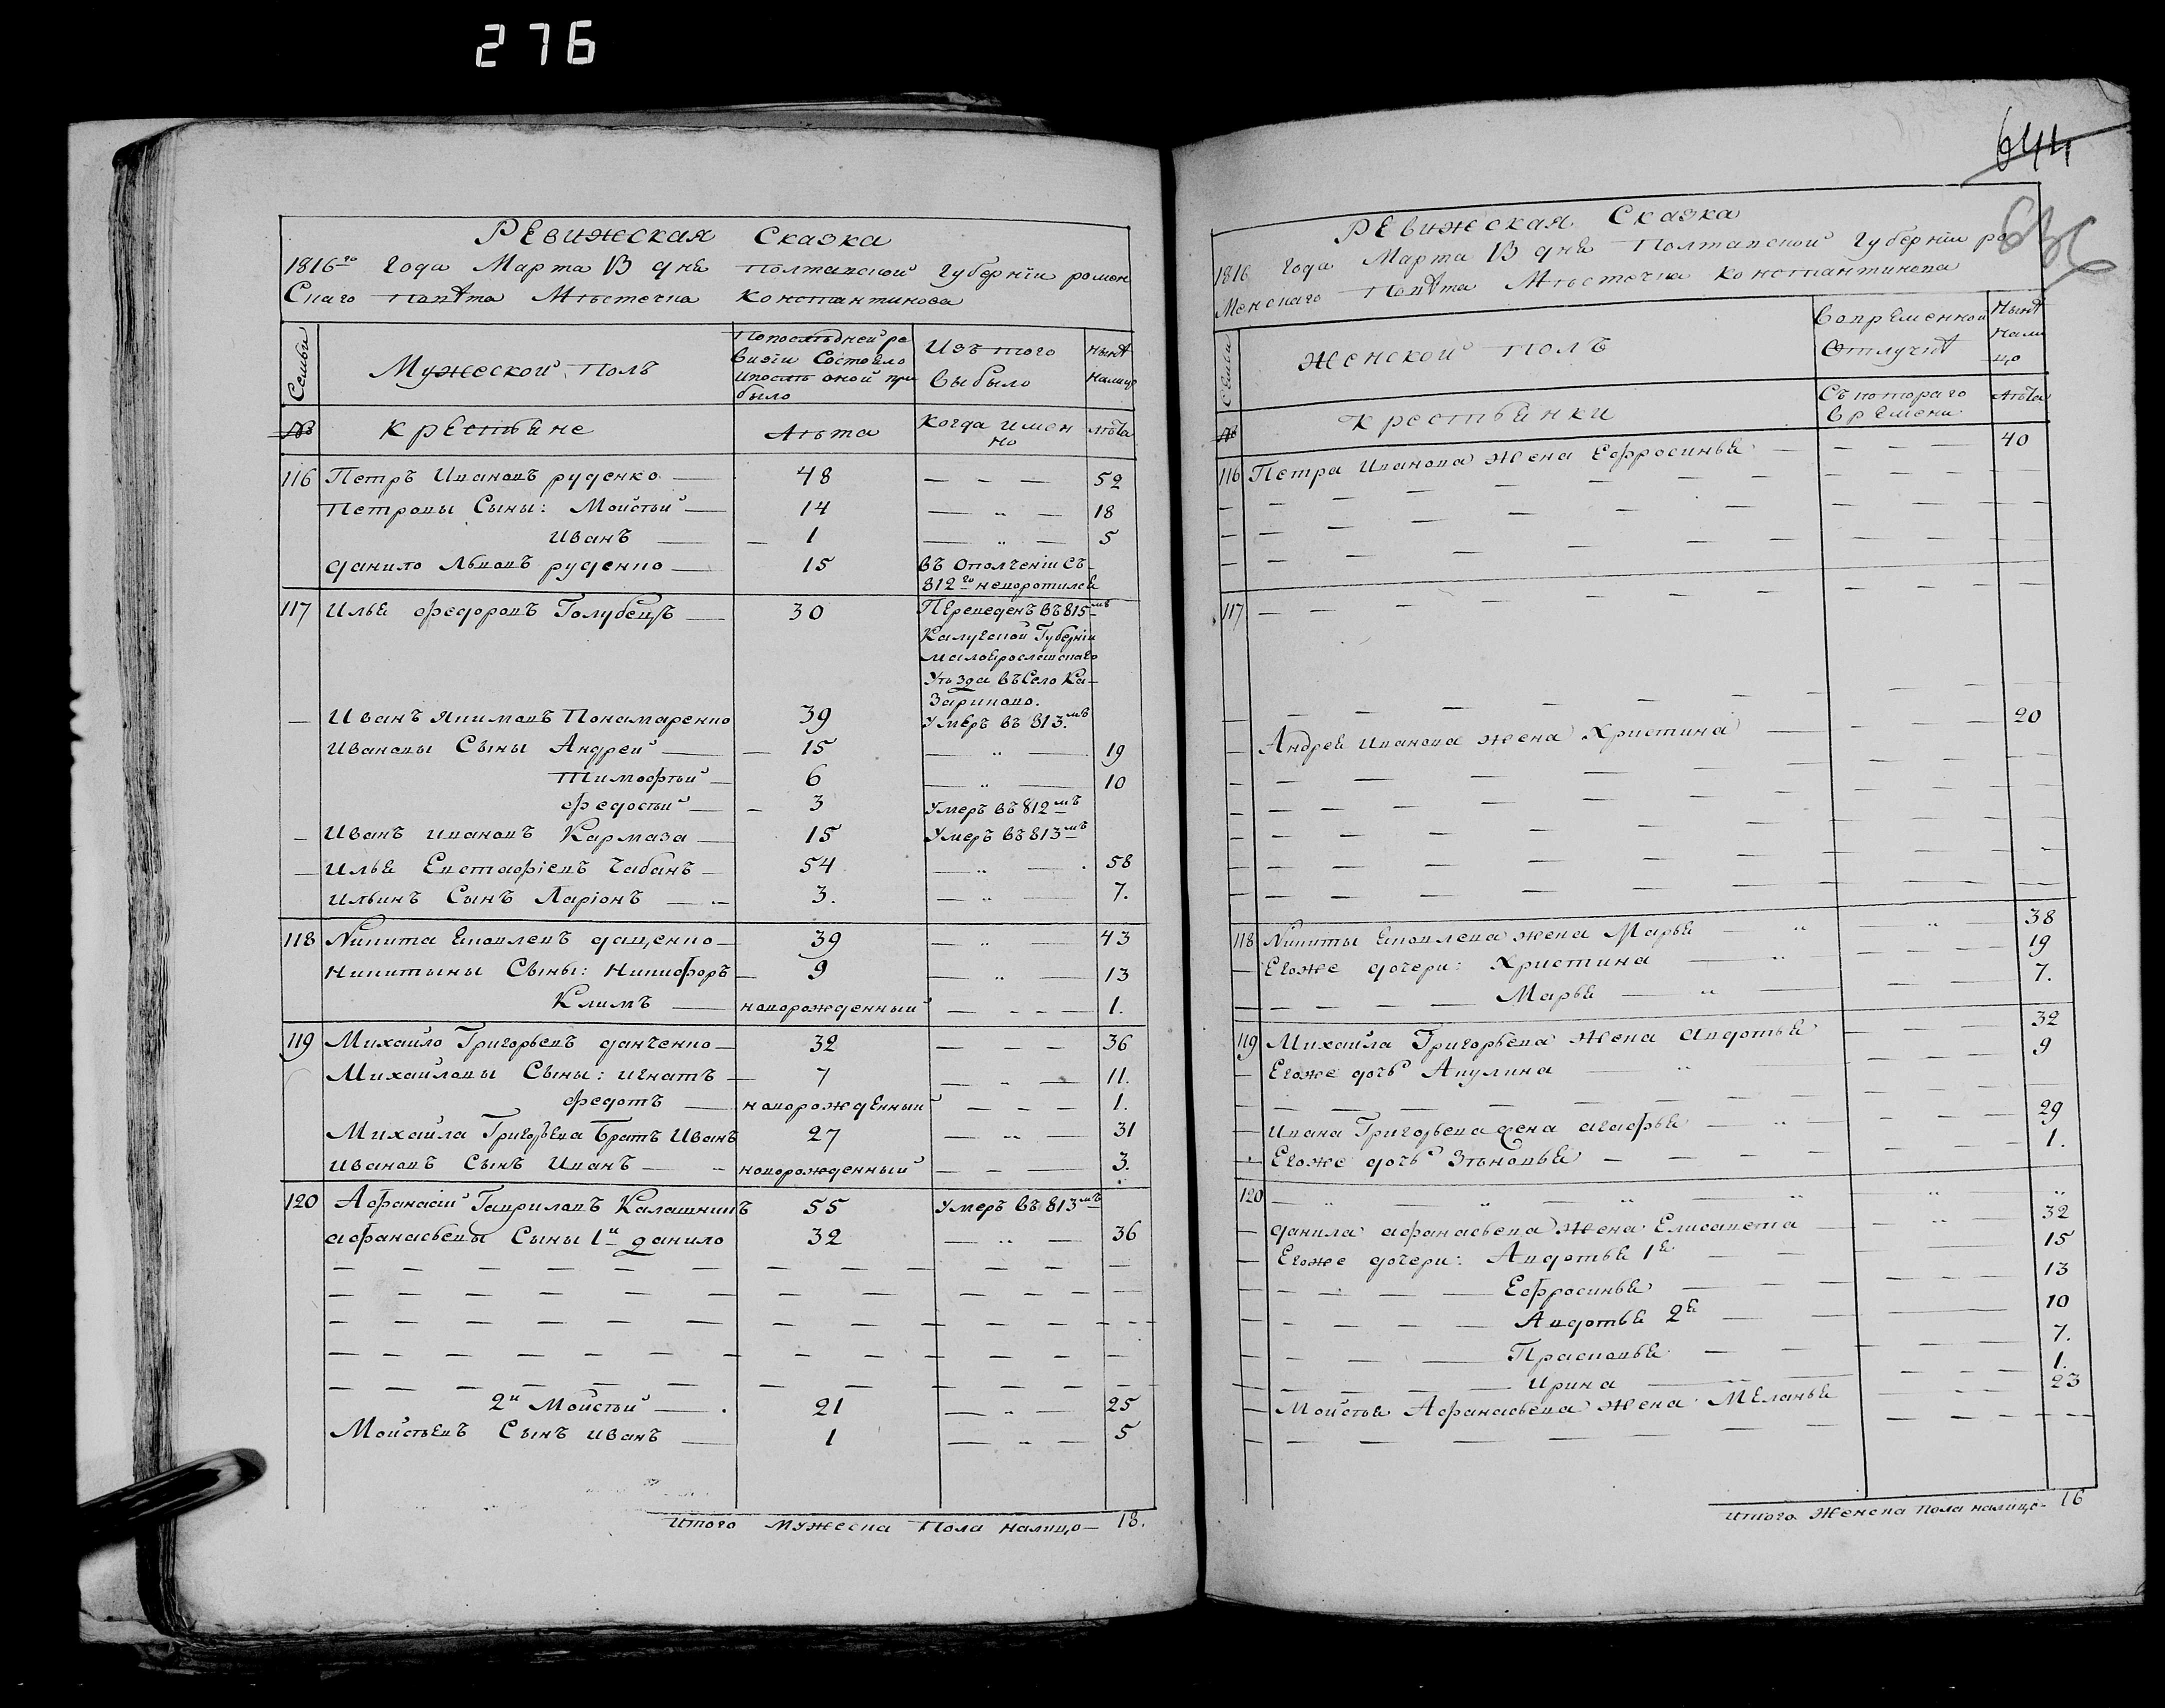 276
Ревижская Сказка
1816го Года Марта 13 дня Полтавской Губернiи ромен
Скаго Повѣта Мѣстечка Константинова
Семьи
Мужеской Полъ
Попослѣдней ре
визiи Состояло
ипослѣ оной при
было
Изъ того
выбыло
Нынѣ
налицо
№
Крестьяне
Лѣта
Когда имен
но
Лѣта
116 Петръ Ивановъ руденко — 48 — — — 52
Петровы Сыны: Мойсѣй — 14 — „ — 18
Иванъ — — 1 — „ — 5
данило Львовъ руденко — 15 въ Ополченiи съ
812го неворотился
117 Илья федоровъ Голубецъ — 30 Переведенъ въ 815мъ
Калужской Губернiи
малоярославскаго
Уѣзда въ Село Ка-
зариново.
— Иванъ якимовъ Понамаренко 39 Умеръ въ 813.мъ
Ивановы Сыны Андрей — — 15 — „ — 19
Тимофѣй — 6 — „ — 10
федосѣй — — 3 Умеръ въ 812мъ
— Иванъ ивановъ Кармаза — 15 Умеръ въ 813мъ
— Илья Евстафiевъ Чабанъ — 54 — „ — 58
ильинъ Сынъ Ларiонъ — „ — 3. — „ — 7.
118 Никита Яковлевъ даценко — 39 — „ — 43
Никитыны Сыны: Никифоръ — 9 — „ — 13
Климъ — новорожденный — - - — 1.
119 Михайло Григорьевъ данченко — 32 — — — 36
Михайловы Сыны: игнатъ — 7 — „ — 11.
федотъ — новорожденный — - — 1.
Михайла Григорьева Братъ Иванъ 27 — „ — 31
Ивановъ Сынъ Иванъ — - новорожденный — - — 3.
120 Афанасiй Гавриловъ Калашникъ 55 Умеръ въ 813мъ
афанасьевы Сыны 1й данило 32 — „ — 36
2й Мойсѣй — . 21 — „ — 25
Мойсѣевъ Сынъ иванъ — 1 — „ — 5
Итого Мужеска Пола налицо — 18.
644
636
Ревижская Сказка
1816 Года Марта 13 дня Полтавской Губернiи ро
Менскаго Повѣта Мѣстечка Константинова
Семьи
Женской Полъ
Вовременной
Отлучкѣ
Нынѣ
нали
цо
№
Крестьянки
Съ котораго
времени
Лѣта
116 Петра Иванова Жена Ефросинья — — — — 40
117
— Андрея Иванова жена Христина — — — — 20
118 Никиты Яковлева жена Марья — „ — „ — 38
— Егоже дочери: Христина — „ — — — 19
Марья — „ — — — 7.
119 Михайла Григорьева Жена Авдотья — — — 32
— Егоже дочь Акулина — „ — — — 9
— Ивана Григорьева жена агафья — „ — — — 29
— Егоже дочь Зѣновья — — — — 1.
120 — „ — „ — „ — „ — „
— данила афанасьева Жена Елисавета — — „ — 32
— Егоже дочери: Авдотья 1я — — — — 15
Ефросинья — — — — 13
Авдотья 2я — — — 10
Прасковья — — — — 7.
Ирина — — — 1.
— Мойсѣя Афанасьева Жена Меланья — - — 23
Итого Женска Пола налицо — 16